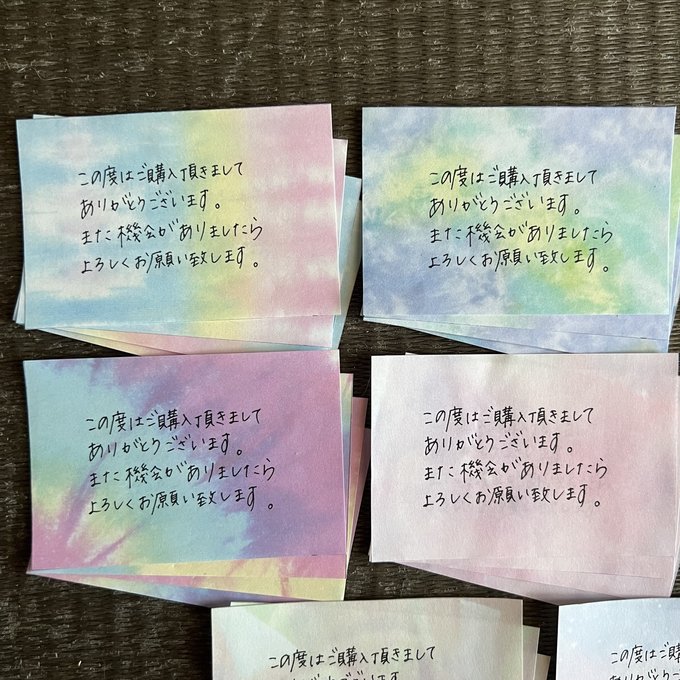 この度はご購入頂きまして
ありがとうございます。
また機会がありましたら
よろしくお願い致します。
この度はご購入頂きまして
ありがとうございます。
また機会がありましたら
よろしくお願い致します。
この度はご購入頂きまして
ありがとうございます。
また機会がありましたら
よろしくお願い致します。
この度はご購入頂きまして
ありがとうございます。
また機会がありましたら
よろしくお願い致します。
この度はご購入頂きまして
ありがとうございます
この度はご購
ありがとうご